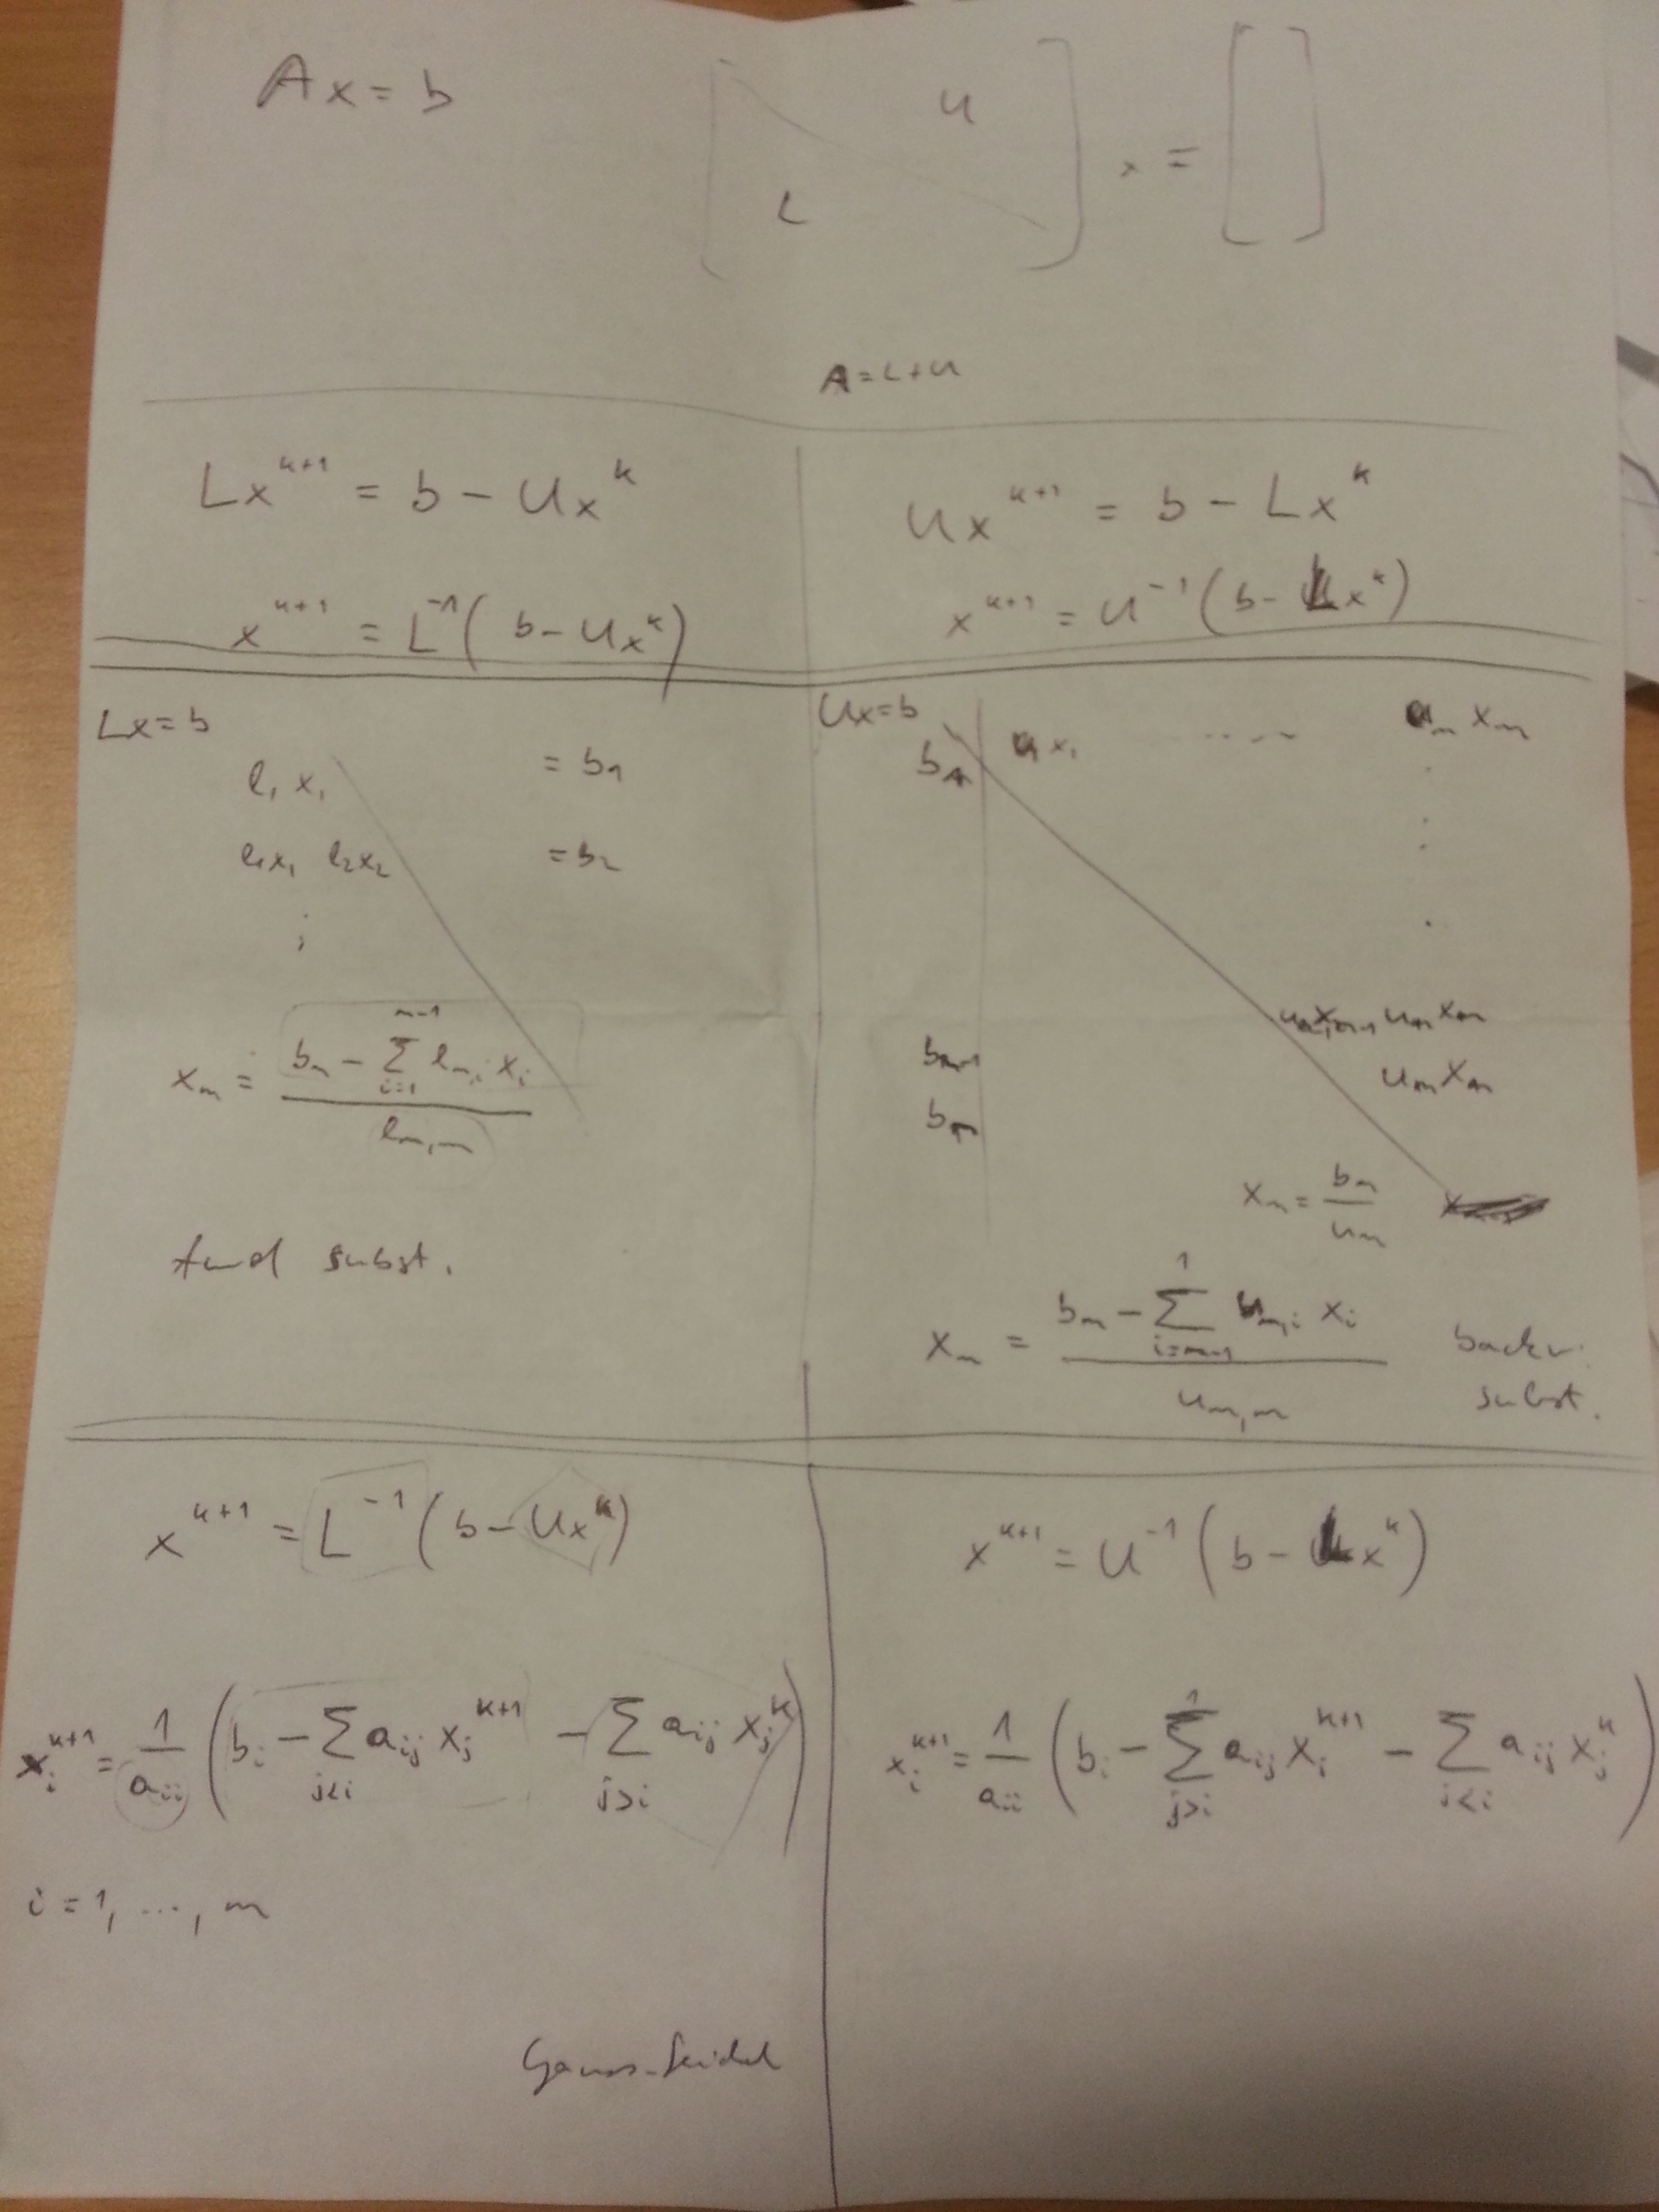 Ax = b
U
L
x =
A = L + U
Lx^{k+1} = b - Ux^k
x^{k+1} = L^{-1}(b - Ux^k)
Ux^{k+1} = b - Lx^k
x^{k+1} = U^{-1}(b - Lx^k)
Lx = b
l_1 x_1 = b_1
l_1x_1 l_2x_2 = b_2
⋮
x_m = \frac{b_m - \sum_{i=1}^{m-1} l_{m,i} x_i}{l_{m,m}}
fwd subst.
Ux = b
b_1 u_1 x_1 ..... u_m x_m
⋮
b_{m-1} u_{m-1}x_{m-1} u_m x_m
b_m u_m x_m
x_m = \frac{b_m}{u_m}
x_m = \frac{b_m - \sum_{i=m-1}^{1} u_{m,i} x_i}{u_{m,m}} backw.
subst.
x^{k+1} = L^{-1}(b - Ux^k)
x_i^{k+1} = \frac{1}{a_{ii}} (b_i - \sum_{j<i} a_{ij} x_j^{k+1} - \sum_{j>i} a_{ij} x_j^k)
i = 1, ..., m
Gauss-Seidel
x^{k+1} = U^{-1}(b - Lx^k)
x_i^{k+1} = \frac{1}{a_{ii}} (b_i - \sum_{j>i} a_{ij} x_i^{k+1} - \sum_{i<i} a_{ij} x_j^k)